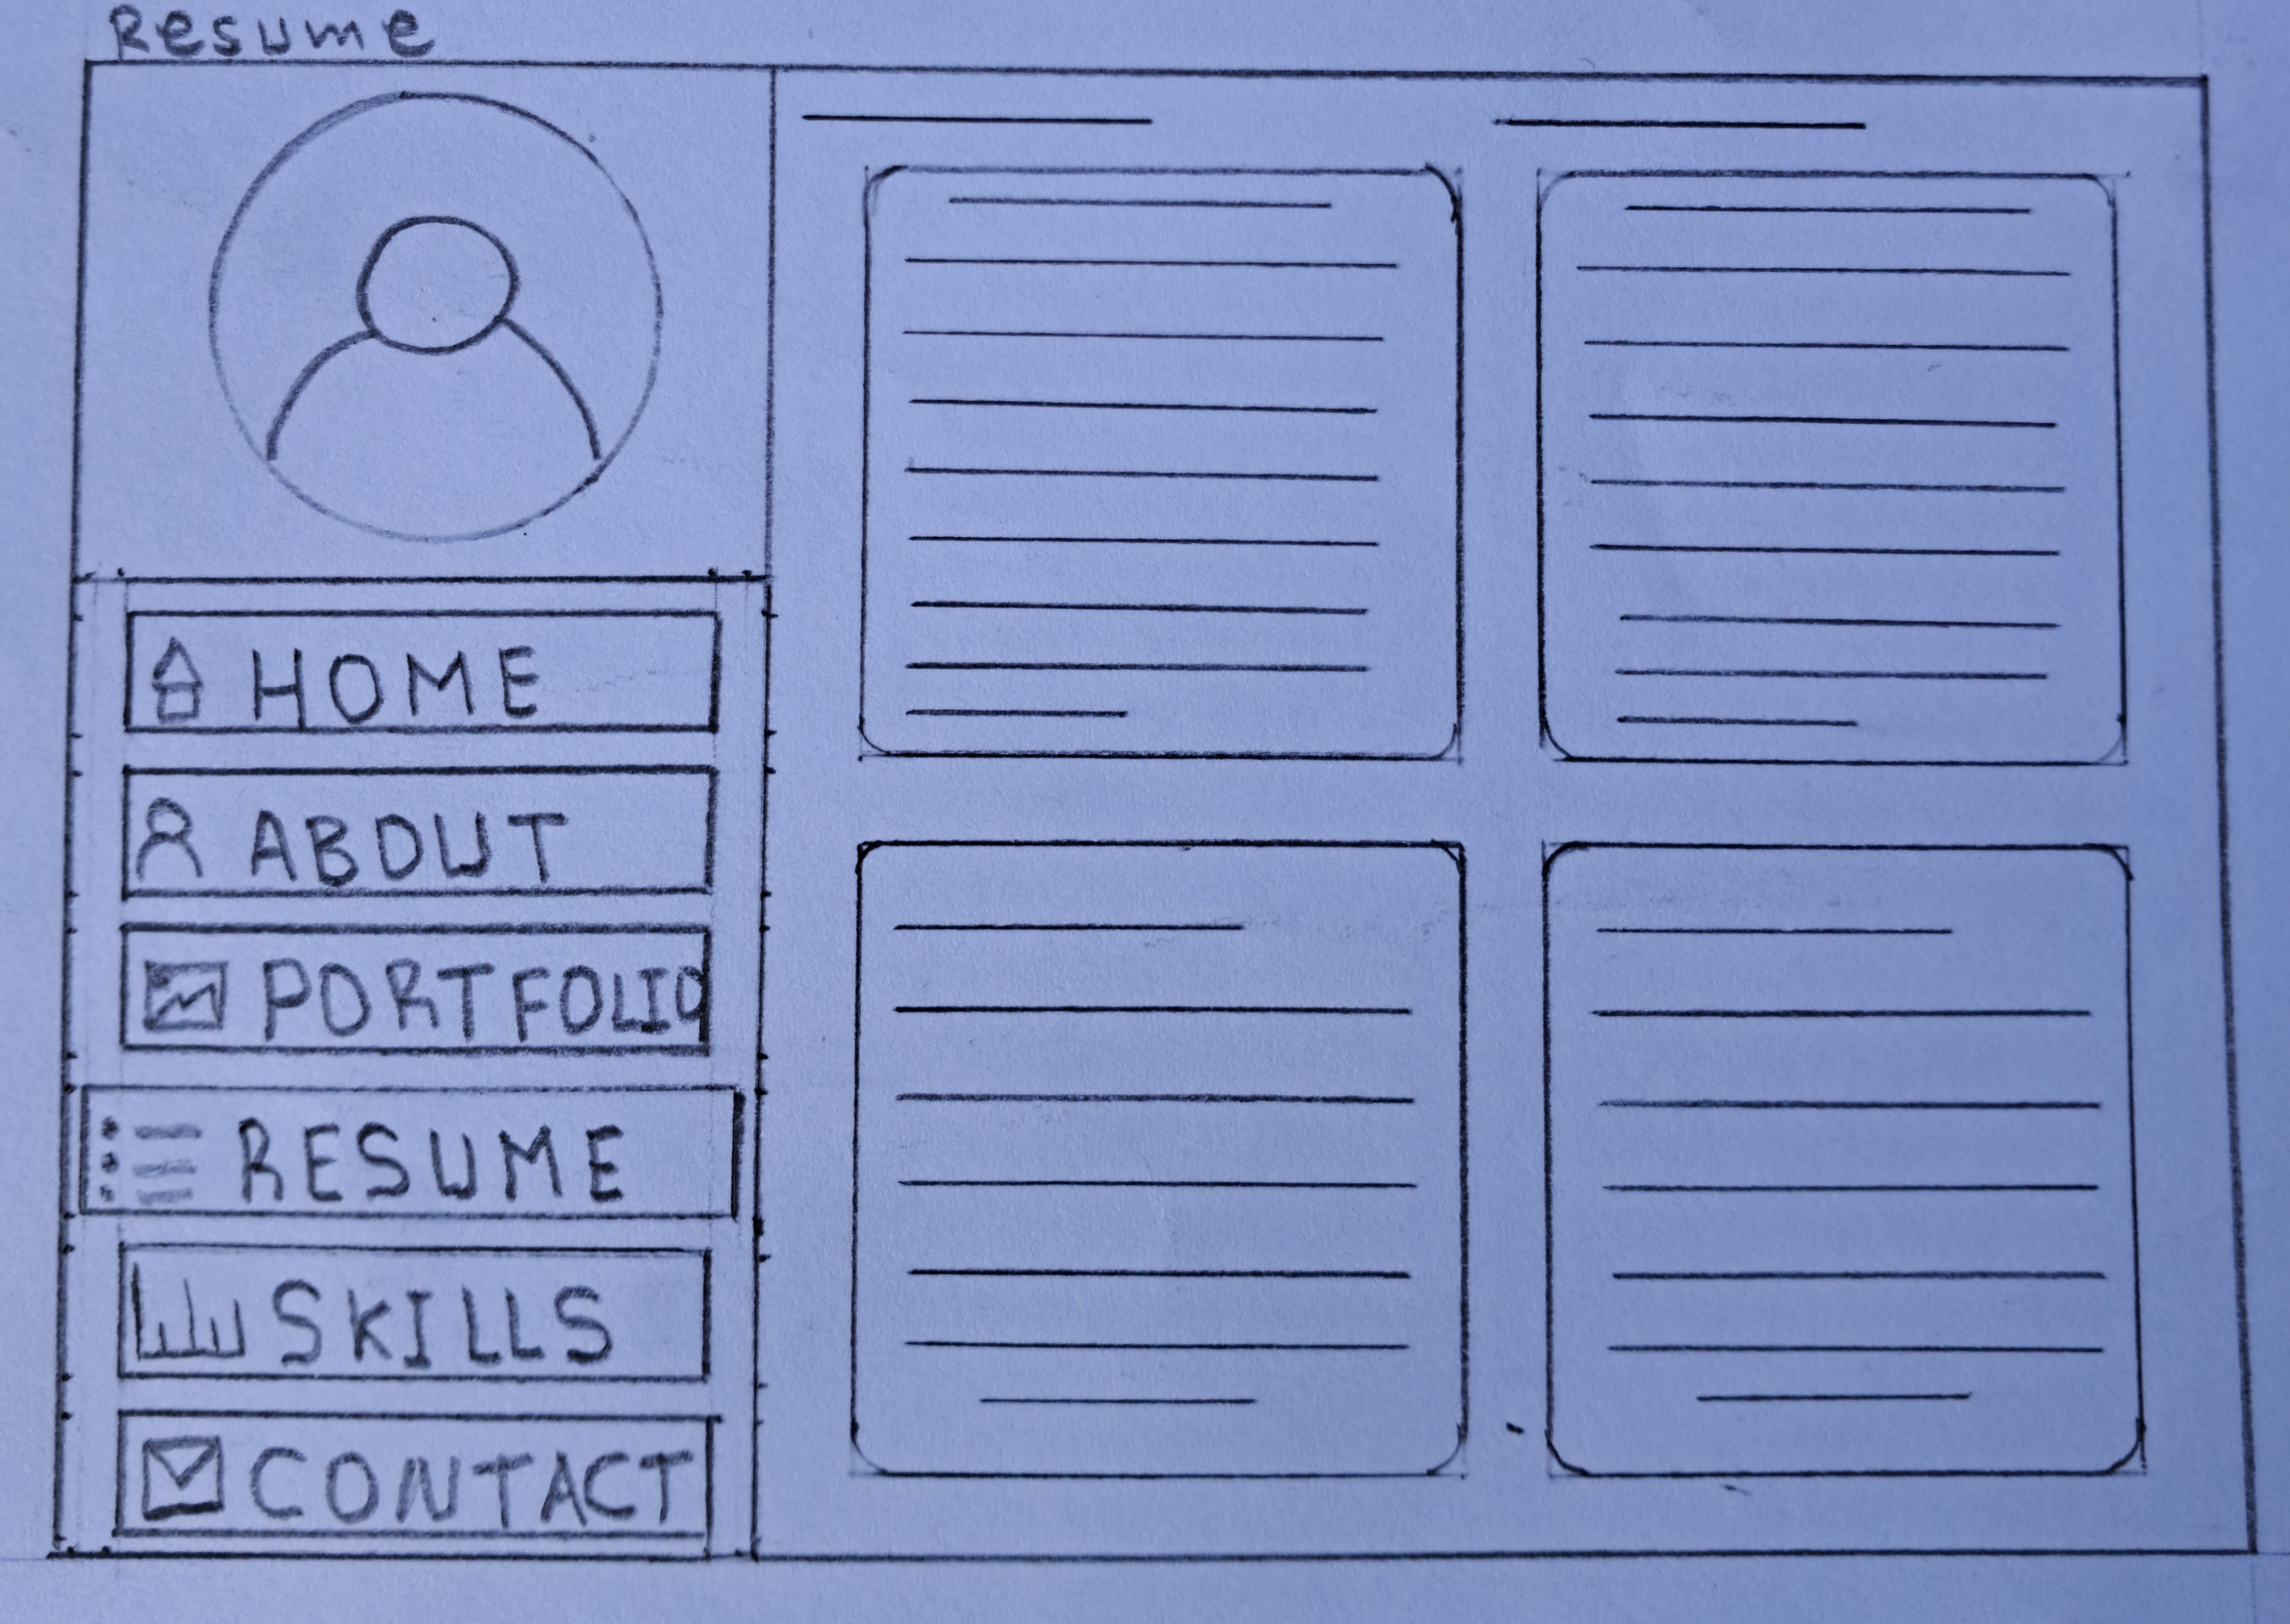 Resume
HOME
ABOUT
PORTFOLIO
RESUME
SKILLS
CONTACT